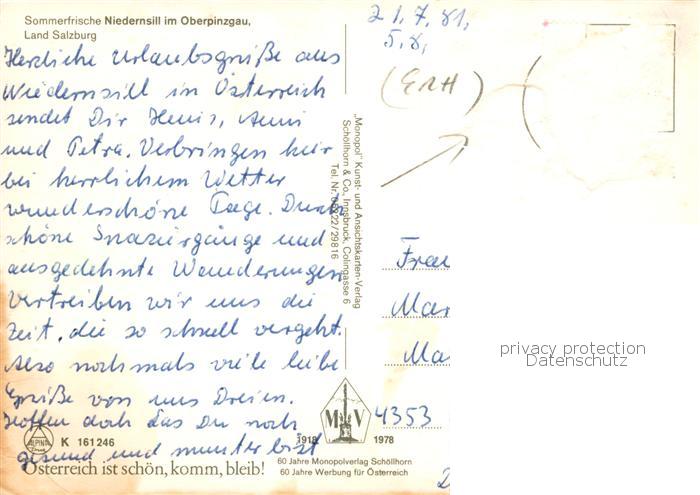 Sommerfrische Niedernsill im Oberpinzgau,
Land Salzburg
Herzliche Urlaubsgrüße aus
Niedernsill in Österreich
sendet Dir Heini, Anni
und Petra. Verbringen hier
bei herrlichem Wetter
wunderschöne Tage. Durch
schöne Spaziergänge und
ausgedehnte Wanderungen
vertreiben wir uns die
Zeit, die so schnell vergeht.
Also nochmals viele liebe
Grüße von uns Dreien.
Hoffen doch das Du noch
gesund und munter bist
ALPINA
K 161246
Österreich ist schön, komm, bleib!
„Monopol" Kunst- und Ansichtskarten-Verlag
Schöllhorn & Co., Innsbruck, Colingasse 6
Tel. Nr. 05222/29816
MV
1918 1978
60 Jahre Monopolverlag Schöllhorn
60 Jahre Werbung für Österreich
21.7.81,
5.8,
(ERH)
Frau
Mar
Ma
4353
privacy protection
Datenschutz